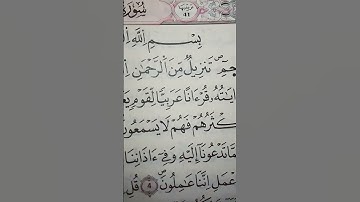 سُورَةُ
٤١
بِسْمِ اللَّهِ
حمٓ تَنزِيلٌ مِّنَ الرَّحْمَٰنِ
ءَايَٰتُهُۥ قُرْءَانًا عَرَبِيًّا لِّقَوْمٍ
أَكْثَرُهُمْ فَهُمْ لَا يَسْمَعُونَ
مِّمَّا تَدْعُونَآ إِلَيْهِ وَفِىٓ ءَاذَانِنَا
فَٱعْمَلْ إِنَّنَا عَٰمِلُونَ قُلْ